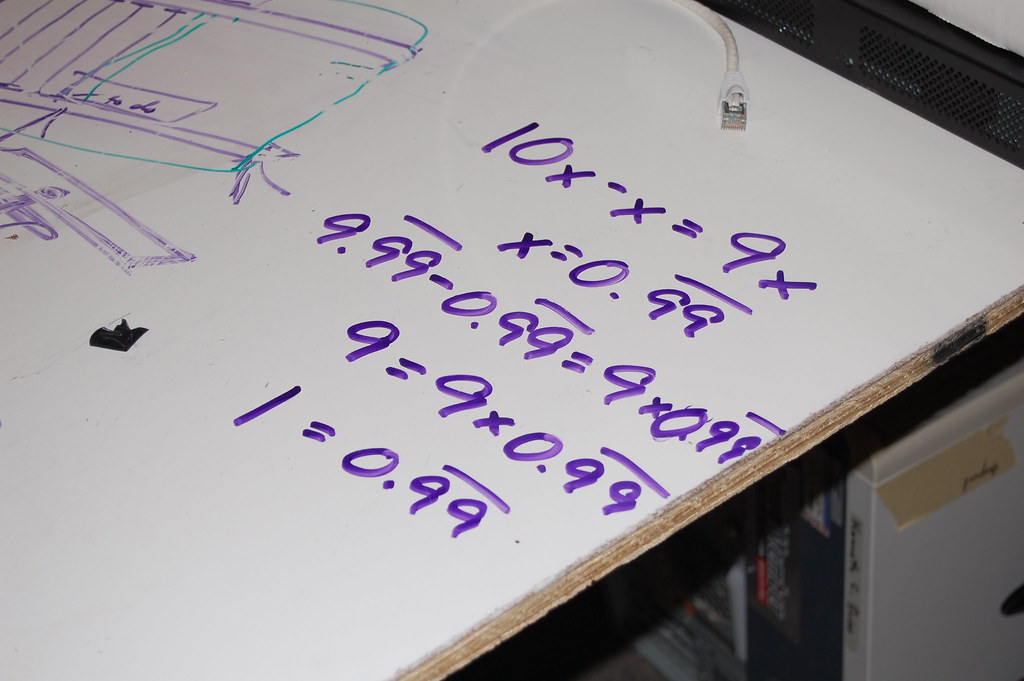 10x - x = 9x
x = 0.9̅9̅
9.9̅9̅ - 0.9̅9̅ = 9 × 0.99̅
9 = 9 × 0.9̅9̅
1 = 0.9̅9̅
to do